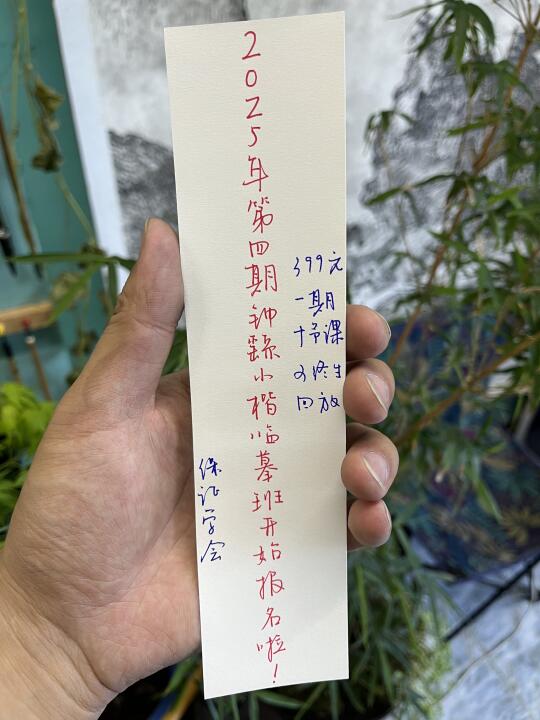 2025年第四期钟繇小楷临摹班开始报名啦!
399元
一期
十节课
可终生
回放
保证学会